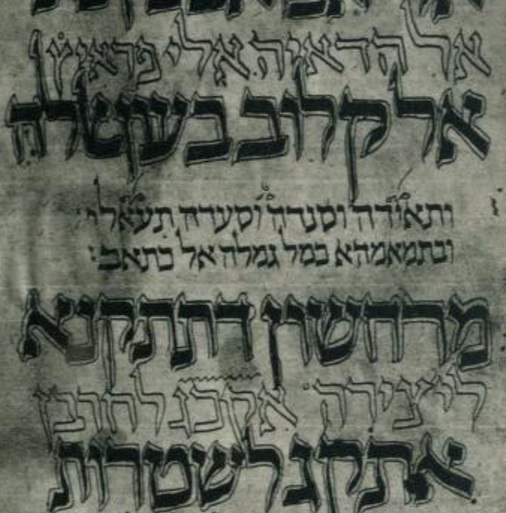 אל הדאיה אלי פראיץ
אל קלוב
ותאידה וסנדה וסעדה תעאלי
ובתמאמהא כמל גמלה אל כתאב:
מרחשון דתתקנא
ליצירה אקכג לחורבן
אתקג לשטרות